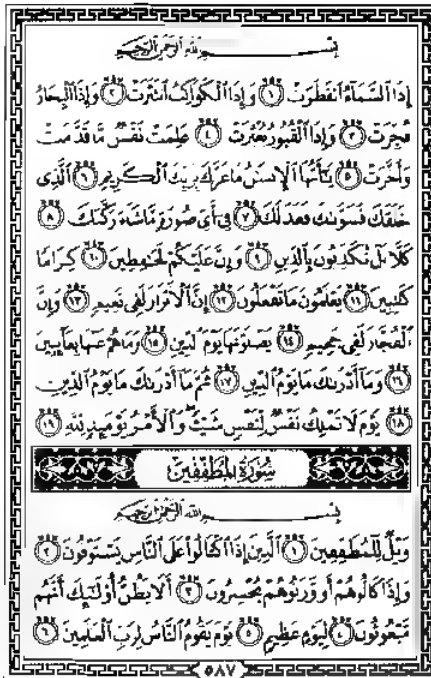 بِسْمِ اللَّهِ الرَّحْمَٰنِ الرَّحِيمِ
إِذَا السَّمَاءُ انفَطَرَتْ ١ وَإِذَا الْكَوَاكِبُ انتَثَرَتْ ٢ وَإِذَا الْبِحَارُ
فُجِّرَتْ ٣ وَإِذَا الْقُبُورُ بُعْثِرَتْ ٤ عَلِمَتْ نَفْسٌ مَّا قَدَّمَتْ
وَأَخَّرَتْ ٥ يَٰأَيُّهَا الْإِنسَٰنُ مَا غَرَّكَ بِرَبِّكَ الْكَرِيمِ ٦ الَّذِي
خَلَقَكَ فَسَوَّىٰكَ فَعَدَلَكَ ٧ فِي أَيِّ صُورَةٍ مَّا شَاءَ رَكَّبَكَ ٨
كَلَّا بَلْ تُكَذِّبُونَ بِالدِّينِ ٩ وَإِنَّ عَلَيْكُمْ لَحَٰفِظِينَ ١٠ كِرَامًا
كَٰتِبِينَ ١١ يَعْلَمُونَ مَا تَفْعَلُونَ ١٢ إِنَّ الْأَبْرَارَ لَفِي نَعِيمٍ ١٣ وَإِنَّ
الْفُجَّارَ لَفِي جَحِيمٍ ١٤ يَصْلَوْنَهَا يَوْمَ الدِّينِ ١٥ وَمَا هُمْ عَنْهَا بِغَائِبِينَ
١٦ وَمَا أَدْرَىٰكَ مَا يَوْمُ الدِّينِ ١٧ ثُمَّ مَا أَدْرَىٰكَ مَا يَوْمُ الدِّينِ
١٨ يَوْمَ لَا تَمْلِكُ نَفْسٌ لِّنَفْسٍ شَيْئًا وَالْأَمْرُ يَوْمَئِذٍ لِّلَّهِ ١٩
سُورَةُ المُطَفِّفِينَ
بِسْمِ اللَّهِ الرَّحْمَٰنِ الرَّحِيمِ
وَيْلٌ لِّلْمُطَفِّفِينَ ١ الَّذِينَ إِذَا اكْتَالُوا عَلَى النَّاسِ يَسْتَوْفُونَ ٢
وَإِذَا كَالُوهُمْ أَو وَّزَنُوهُمْ يُخْسِرُونَ ٣ أَلَا يَظُنُّ أُولَٰئِكَ أَنَّهُم
مَّبْعُوثُونَ ٤ لِيَوْمٍ عَظِيمٍ ٥ يَوْمَ يَقُومُ النَّاسُ لِرَبِّ الْعَٰلَمِينَ ٦
٥٨٧